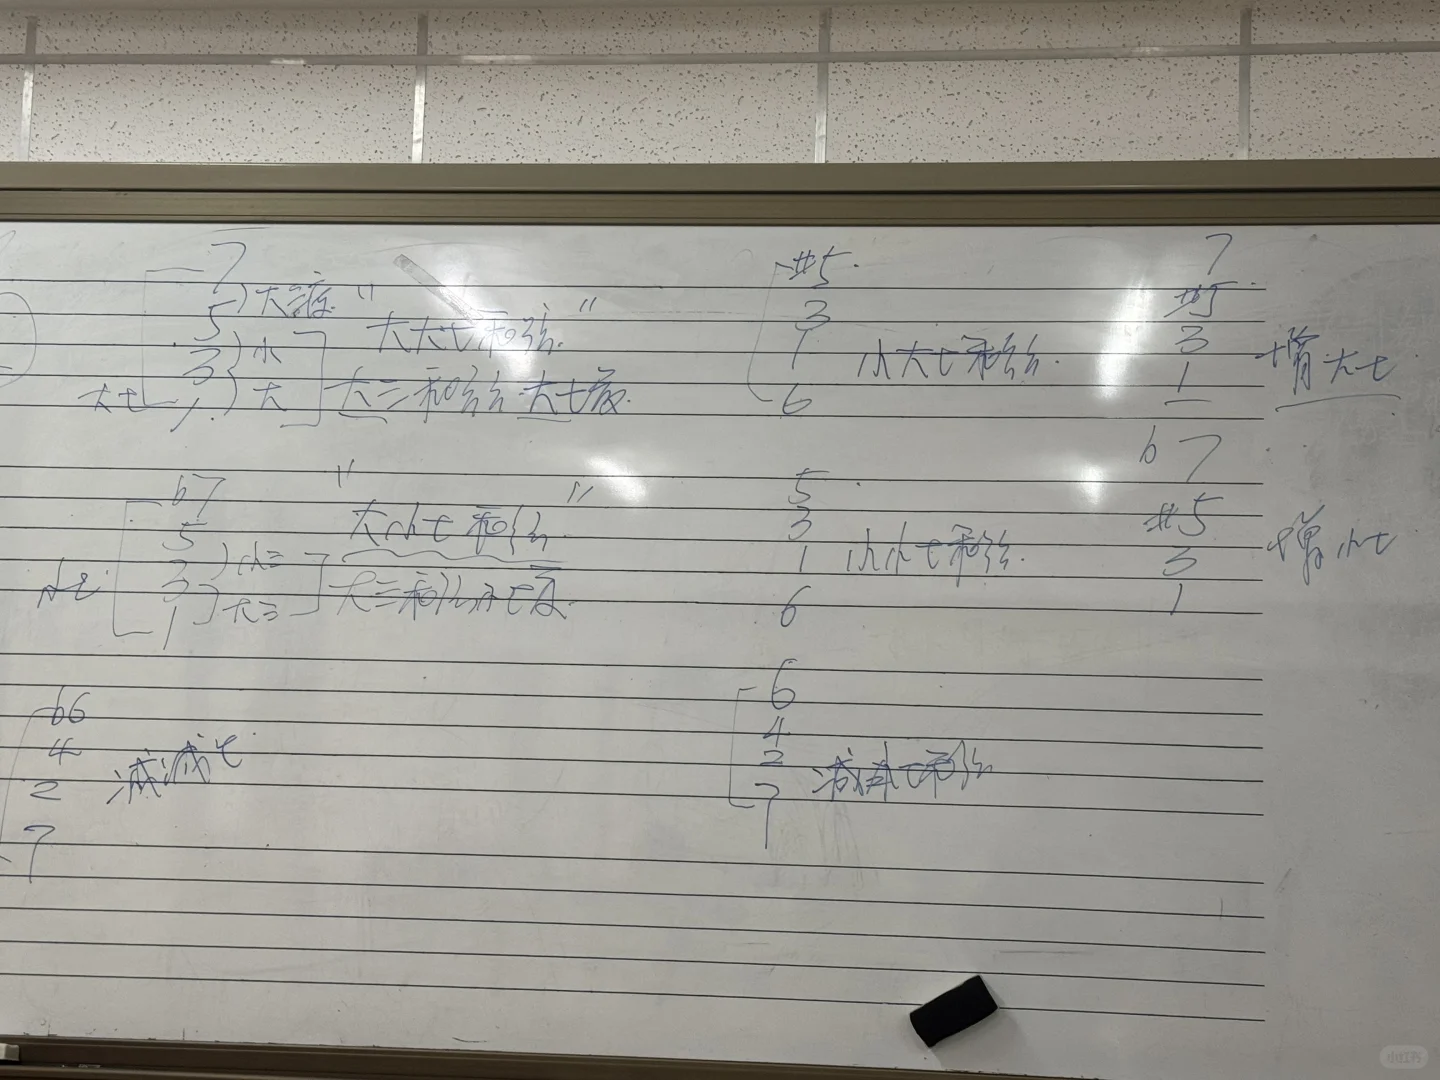 7
5 )大三度
3 )小
1 )大
大七
"大大七和弦"
大三和弦 大七度
#5
3
1
6
小大七和弦
7
#5
3
1
增大七
b7
5
3 )小三
1 )大三
小七
"大小七和弦"
大三和弦小七度
5
3
1
6
小小七和弦
b7
#5
3
1
增小七
b6
4
2
7
减减七
6
4
2
7
减小七和弦
小红书